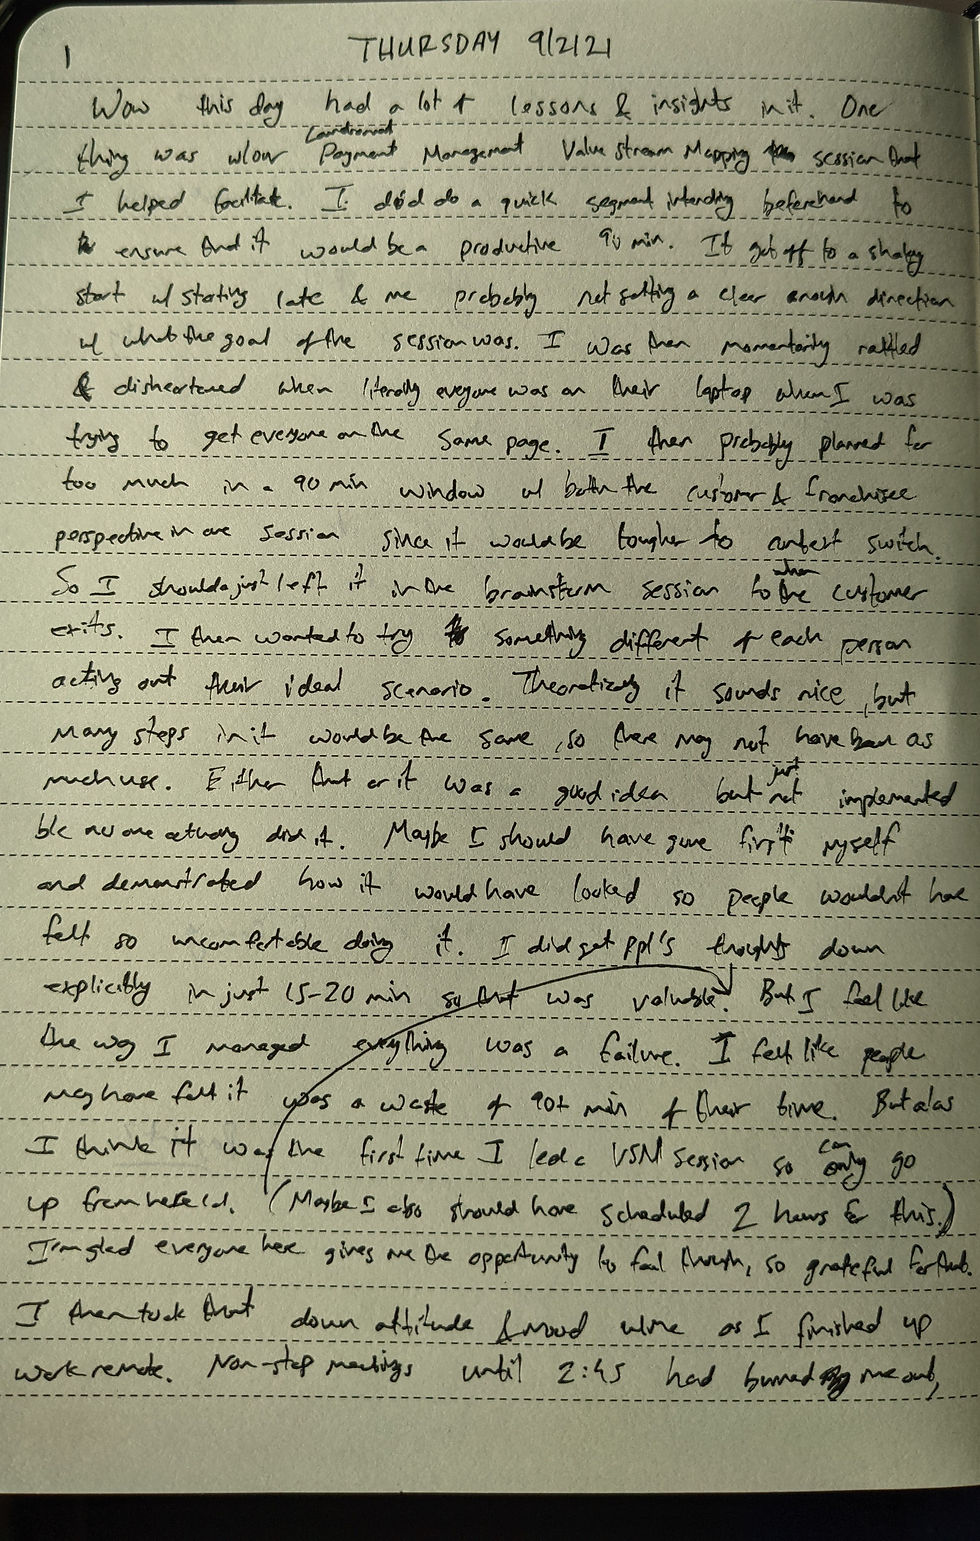 1 THURSDAY 9/2/21
Wow this day had a lot of lessons & insights in it. One
thing was w/our Payment Management Value Stream Mapping session that
I helped facilitate. I did do a quick segment intending beforehand to
ensure that it would be a productive 90 min. It got off to a shaky
start w/ starting late & me probably not setting a clear enough direction
w/ what the goal of the session was. I was then momentarily rattled
& disheartened when literally everyone was on their laptop when I was
trying to get everyone on the same page. I then probably planned for
too much in a 90 min window w/ both the customer & franchisee
perspective in one session since it would be tougher to context switch.
So I shoulda just left it in the brainstorm session to when the customer
exits. I then wanted to try something different of each person
acting out their ideal scenario. Theoretically it sounds nice, but
many steps in it would be the same, so there may not have been as
much use. Either that or it was a good idea but just not implemented
b/c no one actually did it. Maybe I should have gone first myself
and demonstrated how it would have looked so people wouldn't have
felt so uncomfortable doing it. I did get ppl's thoughts down
explicitly in just 15-20 min so that was valuable. But I feel like
the way I managed everything was a failure. I felt like people
may have felt it was a waste of 90+ min of their time. But alas
I think it was the first time I led a VSM session so can only go
up from here lol. (Maybe I also should have scheduled 2 hours for this.)
I'm glad everyone here gives me the opportunity to fail though, so grateful for that.
I then took that down attitude & mood w/me as I finished up
work remote. Non-stop meetings until 2:45 had burned me out,